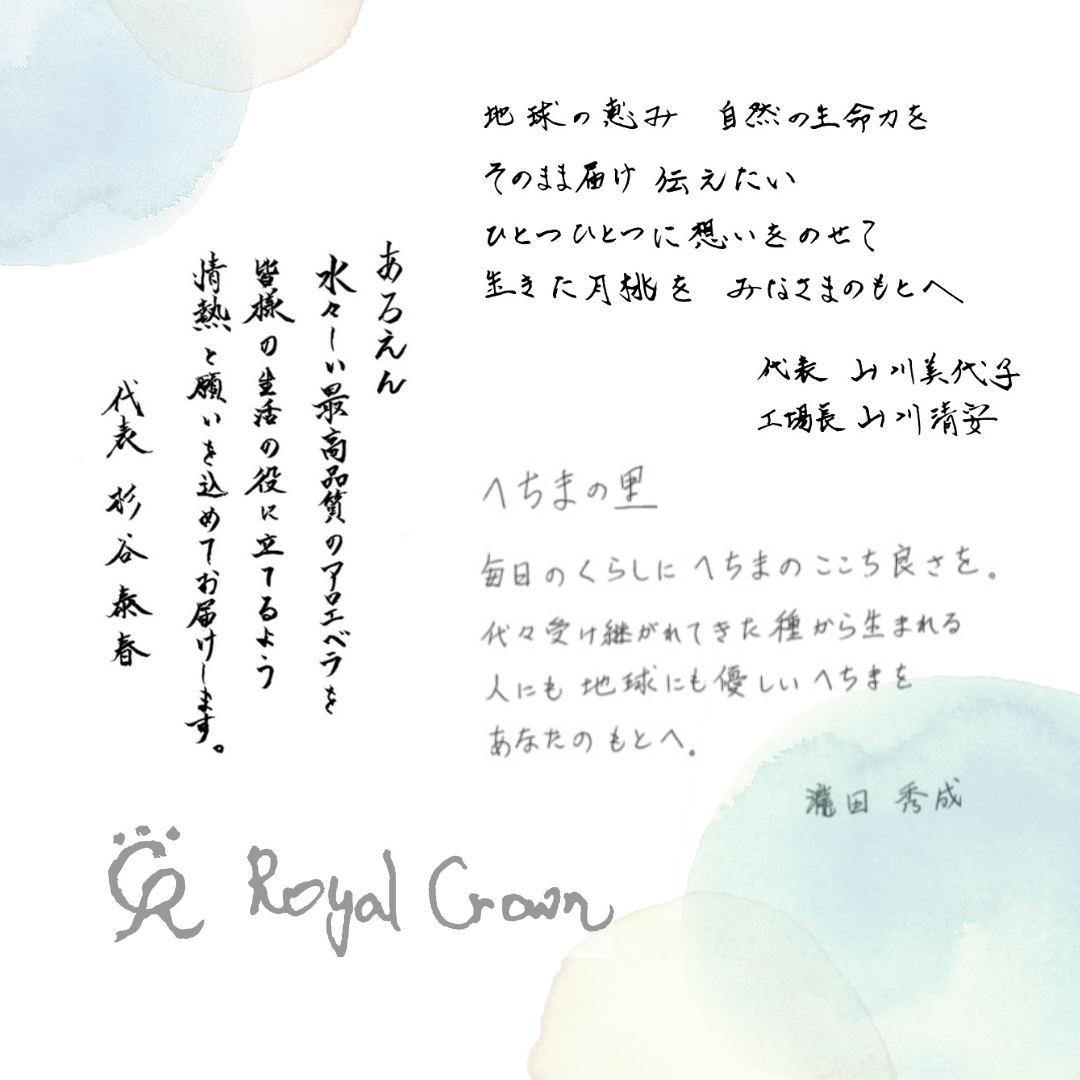 地球の恵み 自然の生命力を
そのまま届け 伝えたい
ひとつひとつに想いをのせて
生きた月桃を みなさまのもとへ
代表 山川美代子
工場長 山川清安
あろえん
水々しい最高品質のアロエベラを
皆様の生活の役に立てるよう
情熱と願いを込めてお届けします。
代表 杉谷泰春
へちまの里
毎日のくらしに へちまのここち良さを。
代々受け継がれてきた種から生まれる
人にも 地球にも優しいへちまを
あなたのもとへ。
瀧田 秀成
Royal Crown